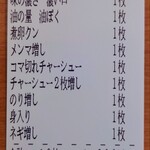 味の濃さ 濃い口 1枚
油の量 油ぽく 1枚
煮卵クン 1枚
メンマ増し 1枚
コマ切れチャーシュー 1枚
チャーシュー2枚増し 1枚
のり増し 1枚
身入り 1枚
ネギ増し 1枚